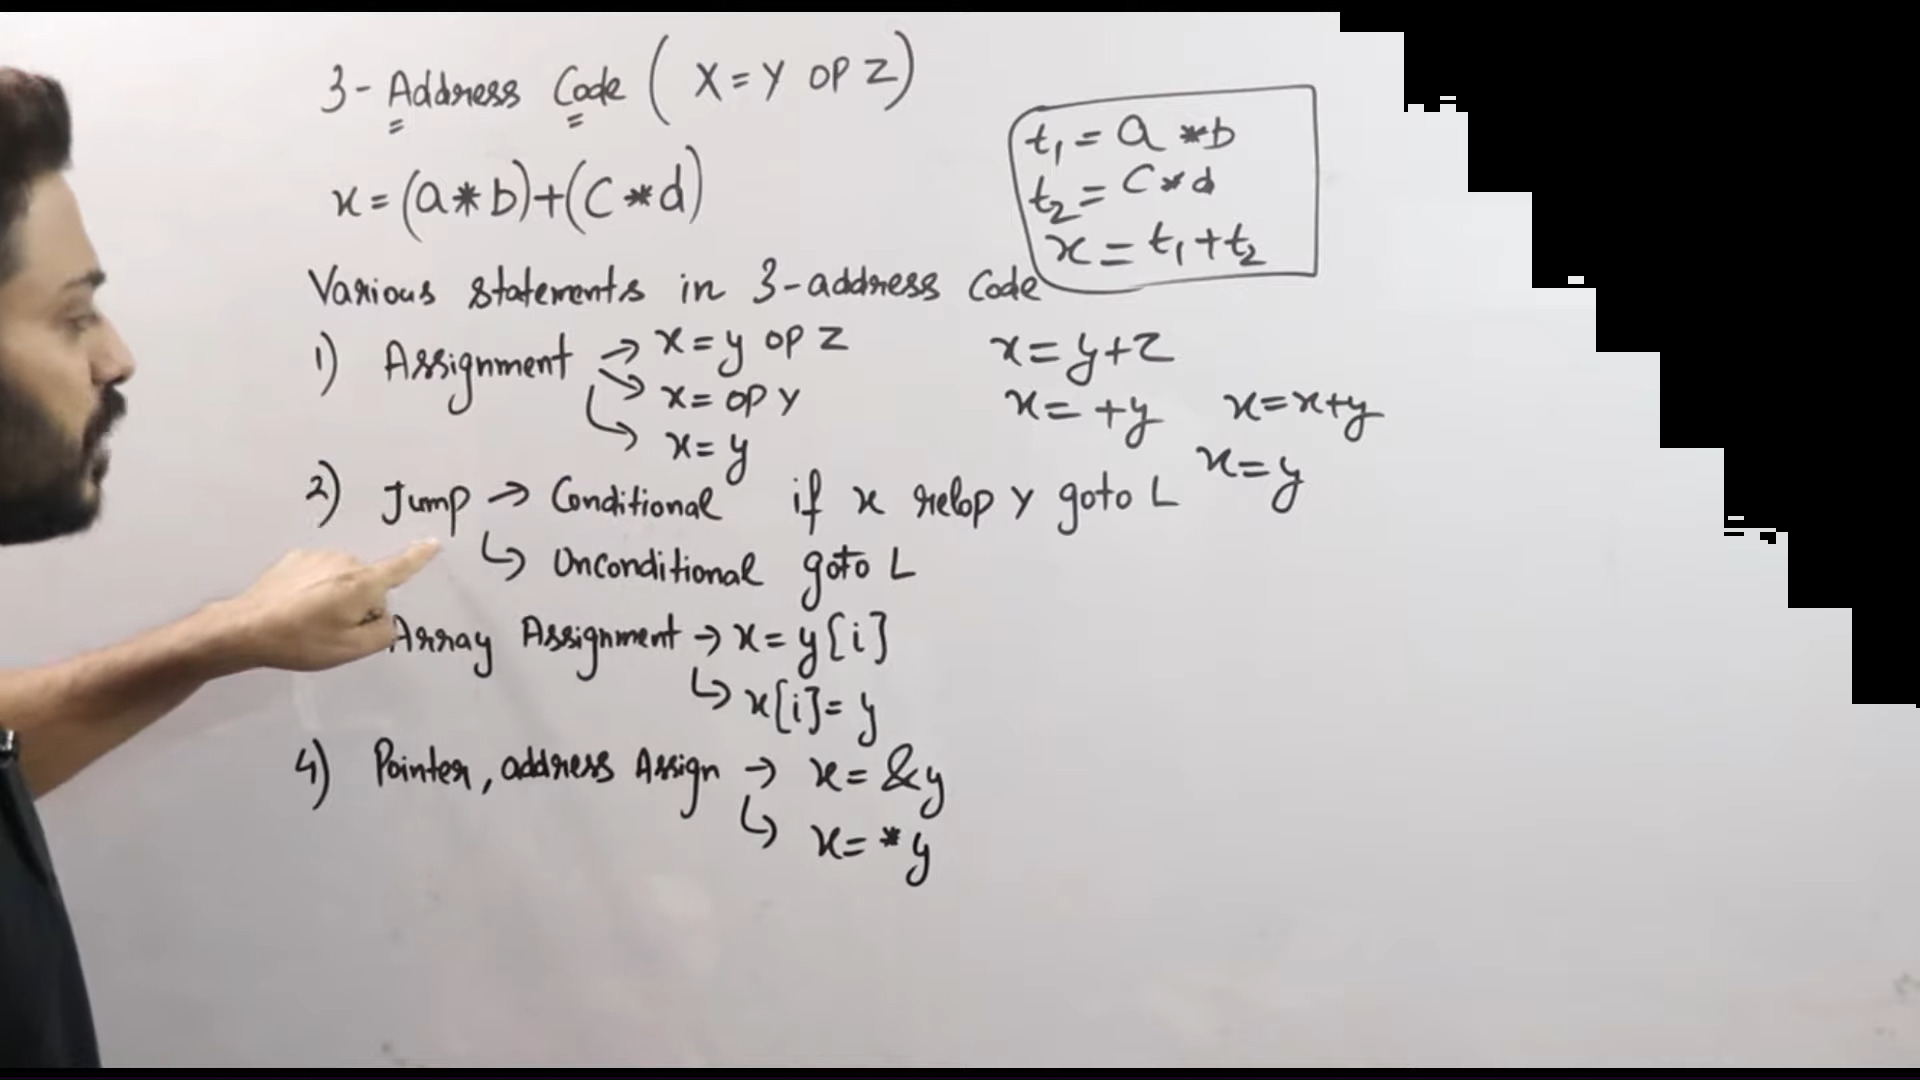 3-Address Code ( X = Y OP Z )
x = (a * b) + (c * d)
t1 = a * b
t2 = c * d
x = t1 + t2
Various statements in 3-address Code
1) Assignment → x = y op z
→ x = op y
→ x = y
x = y + z
x = +y x = x + y
x = y
2) Jump → Conditional if x relop y goto L
↳ Unconditional goto L
Array Assignment → x = y[i]
↳ x[i] = y
4) Pointer, address Assign → x = &y
↳ x = *y